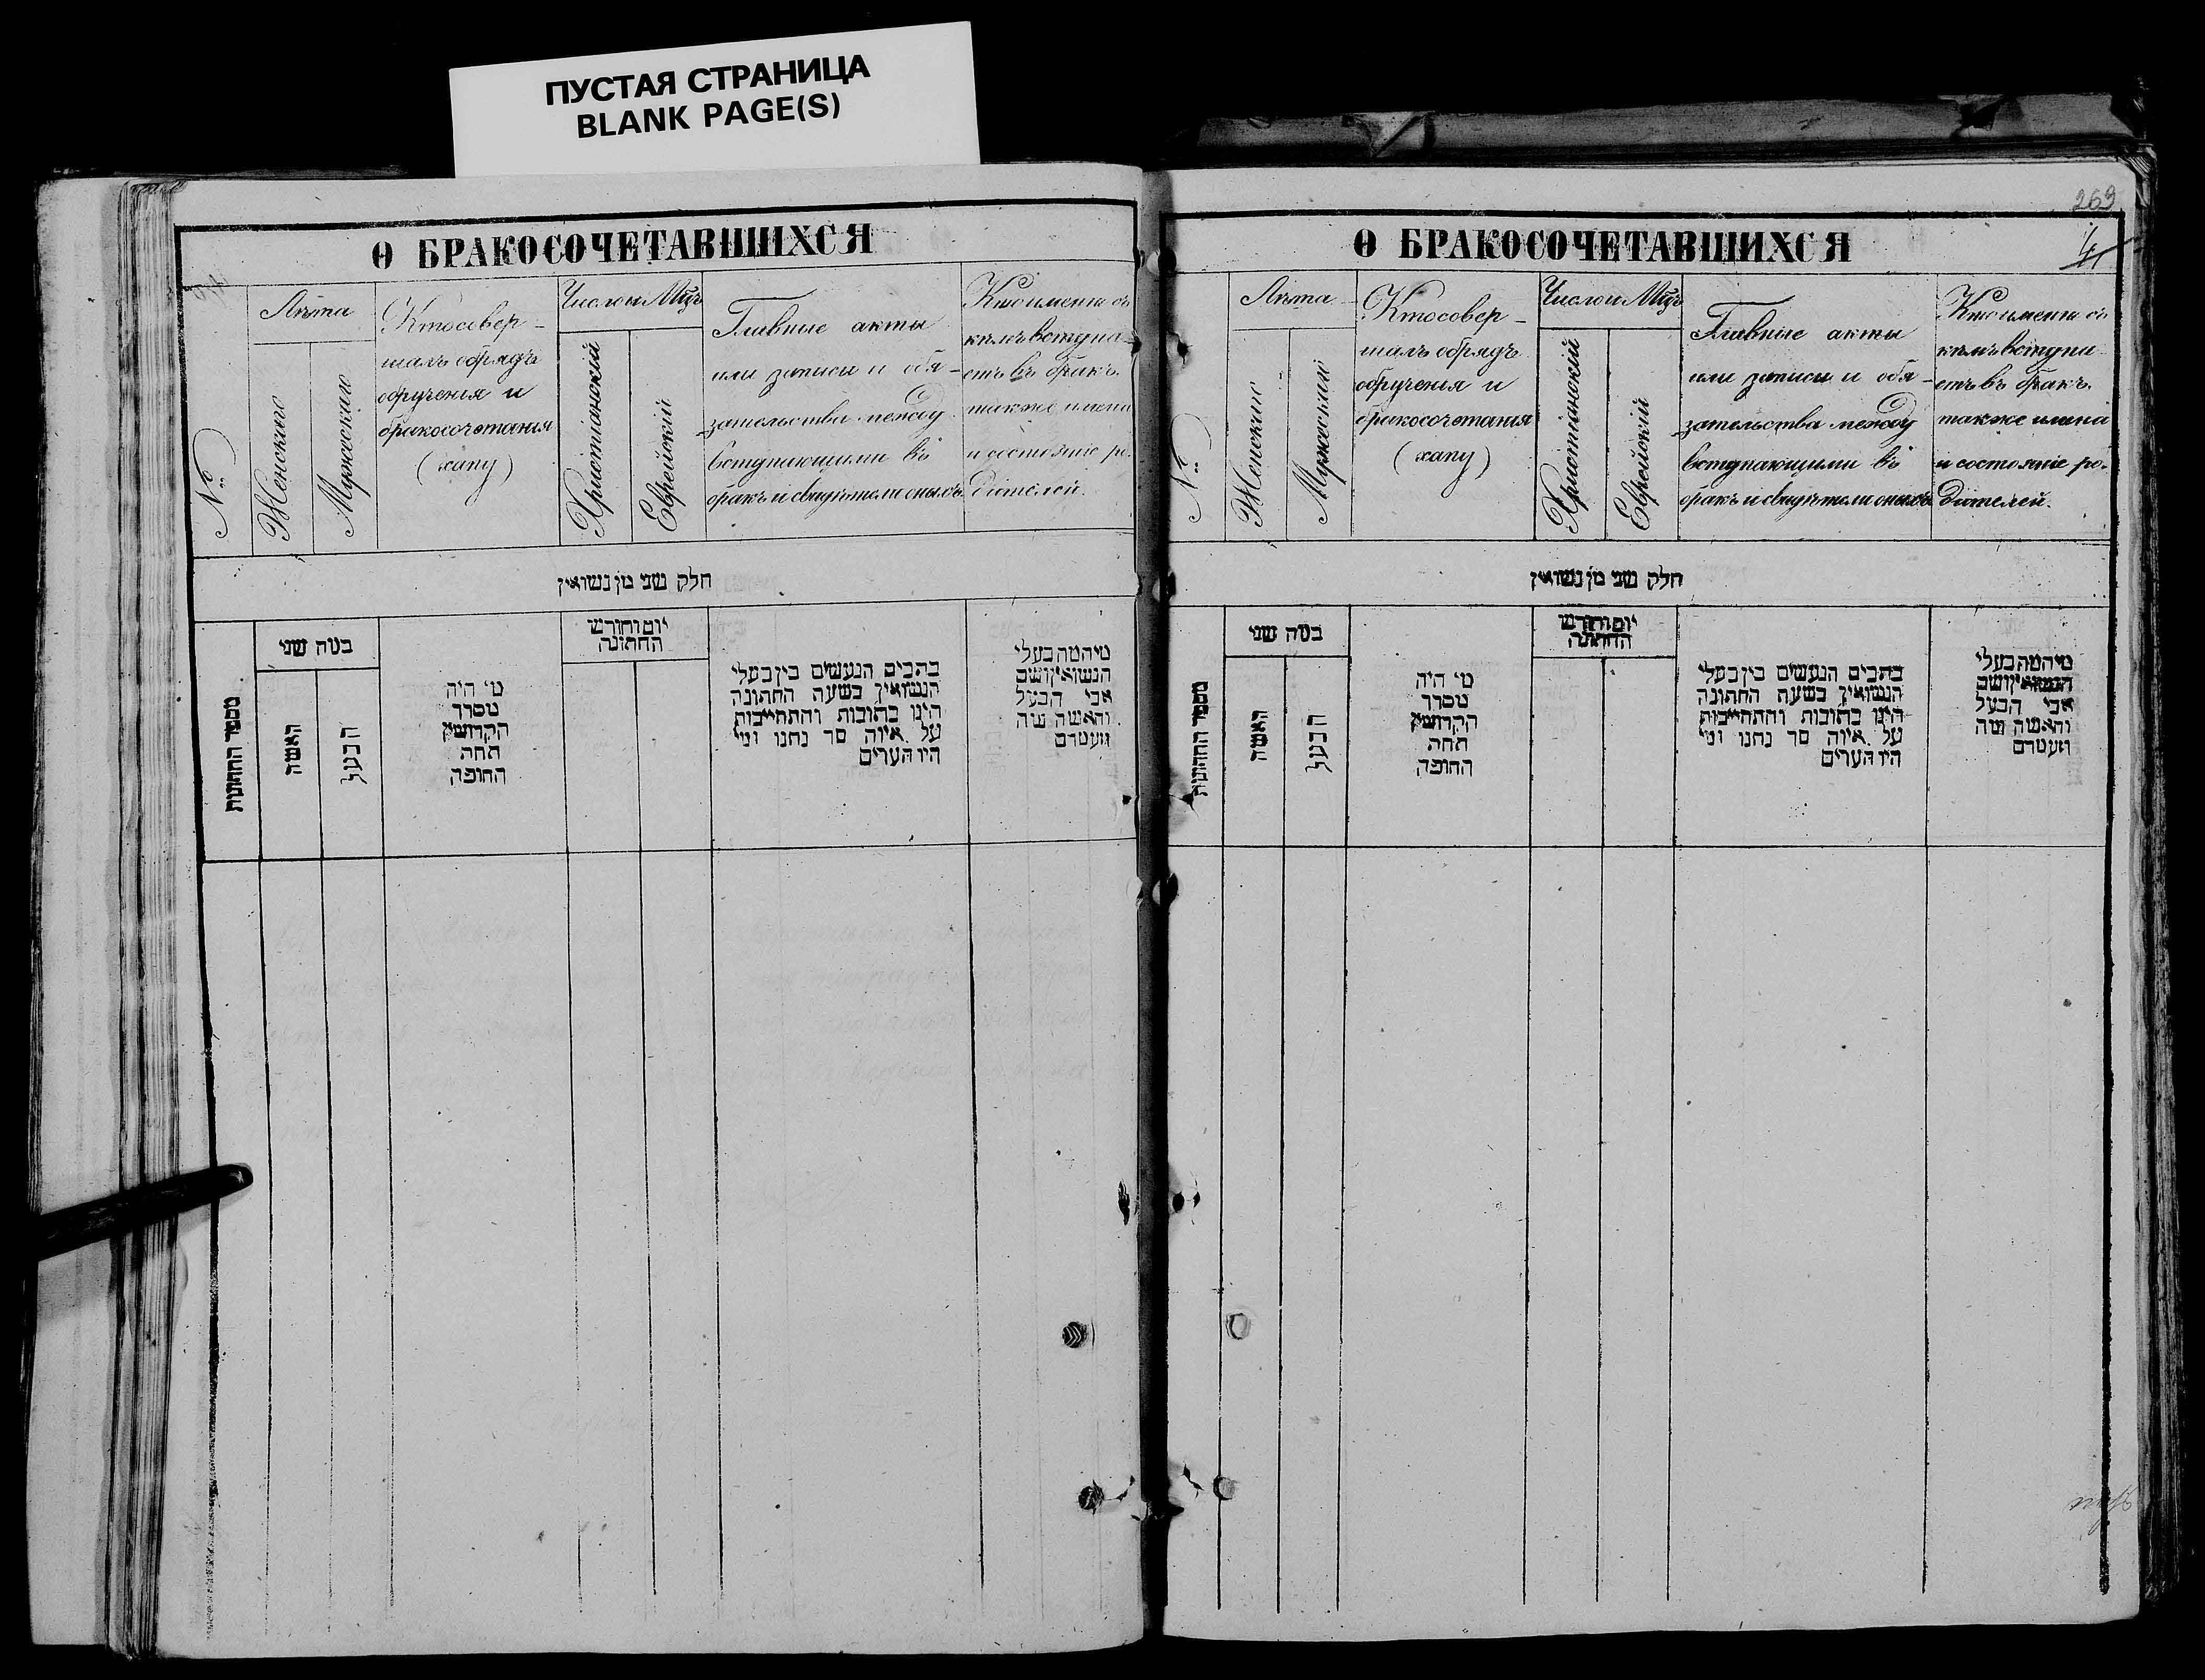 ПУСТАЯ СТРАНИЦА
BLANK PAGE(S)
О БРАКОСОЧЕТАВШИХСЯ
№
Лѣта
Женскаго
Мужескаго
Кто совер-
шалъ обрядъ
обрученія и
бракосочетанія
(хапу)
Число и Мцъ
Христіанскій
Еврейскій
Главные акты
или записи и обя-
зательства между
вступающими въ
бракъ и свидѣтели оныхъ
Кто именно съ
кѣмъ вступа-
етъ въ бракъ.
также имена
и состояніе ро-
дителей.
חלק שני מן נשואין
מספר החתונות
כמה שני
האשה
הבעל
מי היה
מסדר
הקדושין
תחת
החופה
יום וחודש
החתונה
כתבים הנעשים בין בעלי
הנשואין בשעת החתונה
היינו כתובות והתחייבות
על איזה סך נתנו ומי
היו העדים
מי המה בעלי
הנשואין ושם
אבי הבעל
והאשה מה
מעמדם
269
4
О БРАКОСОЧЕТАВШИХСЯ
№
Лѣта
Женскаго
Мужескаго
Кто совер-
шалъ обрядъ
обрученія и
бракосочетанія
(хапу)
Число и Мцъ
Христіанскій
Еврейскій
Главные акты
или записи и обя-
зательства между
вступающими въ
бракъ и свидѣтели оныхъ
Кто именно съ
кѣмъ вступа-
етъ въ бракъ.
также имена
и состояніе ро-
дителей.
חלק שני מן נשואין
מספר החתונות
כמה שני
האשה
הבעל
מי היה
מסדר
הקדושין
תחת
החופה
יום וחודש
החתונה
כתבים הנעשים בין בעלי
הנשואין בשעת החתונה
היינו כתובות והתחייבות
על איזה סך נתנו ומי
היו העדים
מי המה בעלי
הנשואין ושם
אבי הבעל
והאשה מה
מעמדם